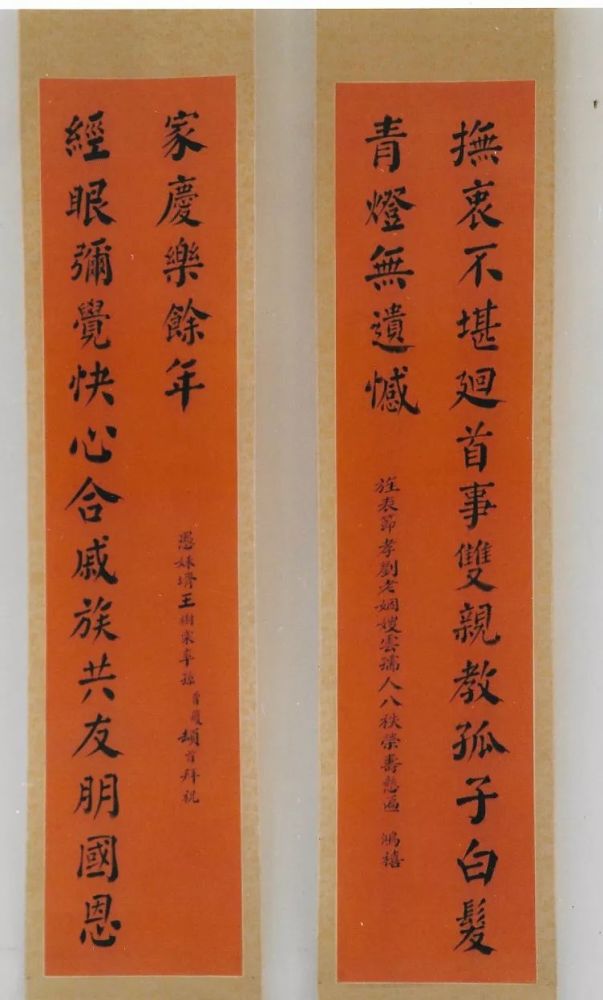 撫衷不堪廻首事雙親教孤子白髮
青燈無遺憾
旌表節孝劉老姻嫂雲孺人八秩榮壽 鴻禧
經眼彌覺快心合戚族共友朋國恩
家慶樂餘年
愚妹壻王樹率 頓首拜祝